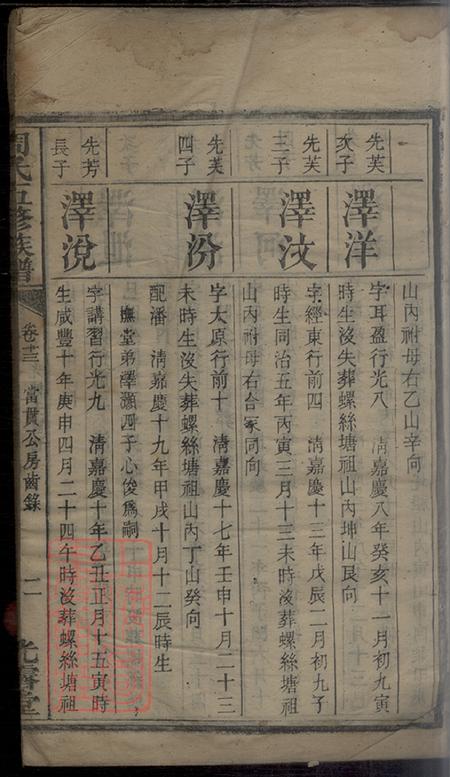 山內祔母右乙山辛向
先芙
次子
澤洋
字耳盈行光八 清嘉慶八年癸亥十一月初九寅
時生沒失葬螺絲塘祖山內坤山艮向
先芙
三子
澤汶
字經東行前四 清嘉慶十三年戊辰二月初九子
時生同治五年丙寅三月十三未時沒葬螺絲塘祖
山內祔母右合冢同向
先芙
四子
澤汾
字太原行前十 清嘉慶十七年壬申十月二十三
未時生沒失葬螺絲塘祖山內丁山癸向
配潘 清嘉慶十九年甲戌十月十二辰時生
撫堂弟澤灝四子心俊爲嗣
先芳
長子
澤涗
字講習行光九 清嘉慶十年乙丑正月十五寅時
生咸豐十年庚申四月二十四午時沒葬螺絲塘祖
周氏五修族譜
卷十三
當貫公房齒錄
二
光霽堂